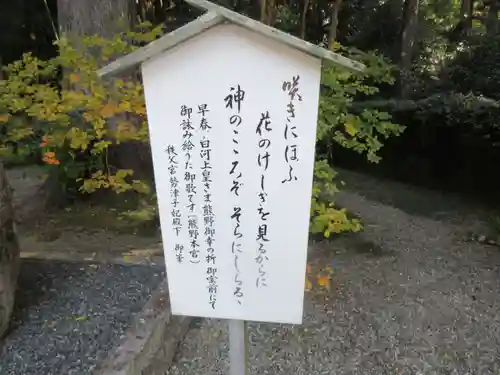 咲きにほふ
花のけしきを見るからに
神のこころぞ そらにしらるゝ
早春、白河上皇さま熊野御幸の折 御宝前にて
御詠み給うた御歌です（熊野本宮）
秩父宮勢津子妃殿下 御筆